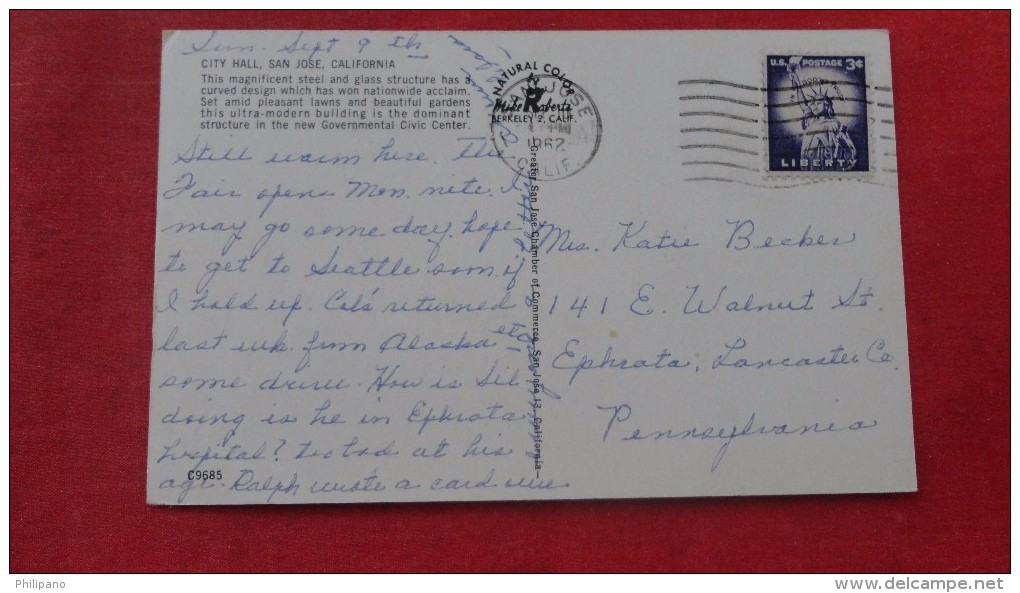 Sun. Sept 9th
CITY HALL, SAN JOSE, CALIFORNIA
This magnificent steel and glass structure has a
curved design which has won nationwide acclaim.
Set amid pleasant lawns and beautiful gardens
this ultra-modern building is the dominant
structure in the new Governmental Civic Center.
Still warm here. The
Fair opens Mon. nite. I
may go some day, hope
to get to Seattle soon if
I hold up. returned
last wk. from Alaska
some drive. How is Sil
doing is he in Ephrata
hospital? too bad at his
age. Ralph wrote a card
C9685
NATURAL COLOR
Mike Roberts
BERKELEY 2, CALIF.
Greater San Jose Chamber of Commerce, San Jose 13, California
SAN JOSE
PM
1962
CALIF.
U.S. POSTAGE 3¢
IN GOD WE TRUST
LIBERTY
Mrs. Katie Becker
141 E. Walnut St.
Ephrata, Lancaster Co.
Pennsylvania
Philipano
www.delcampe.net